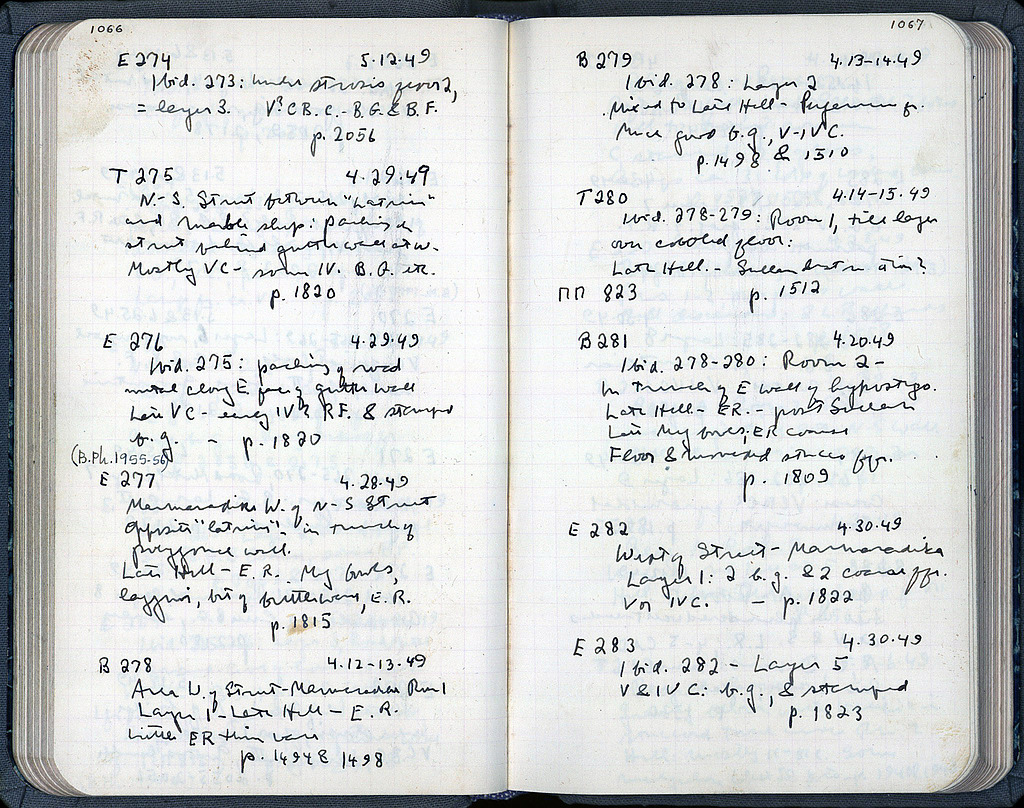 1066
E 274 5.12.49
Ibid. 273: under strosis floor 2,
= layer 3. V? C B.C. - B.G. & B.F.
p. 2056
T 275 4.29.49
N-S. Street between "Latrine"
and marble shop: packing
street behind gutter wall at W.
Mostly VC - some IV. B.G. etc.
p. 1820
E 276 4.29.49
Ibid. 275: packing of road
metal along E. face of gutter wall
Late VC - early IV? R.F. & stamped
b.g. - p. 1820
(B.Ph. 1955-56)
E 277 4.28.49
Marmaradika W. of N-S Street
opposite "Latrine" - in trench of
polygonal wall.
Late Hell - E.R. Meg bowls,
lagynoi, bit of E.R.
p. 1815
B 278 4.12-13.49
Area W. of Street-Marmaradika Rm 1
Layer 1 - Late Hell - E.R.
Little ER thin ware
p. 1494 & 1498
1067
B 279 4.13-14.49
Ibid. 278: Layer 2
Mixed to Late Hell - Pergamene fr.
Much good b.g., V-IVC.
p. 1498 & 1510
T 280 4.14-15.49
Ibid. 278-279: Room 1, fill layer
over cobbled floor:
Late Hell. - Sullan destruction?
ΠΠ 823 p. 1512
B 281 4.20.49
Ibid. 278-280: Room 2 -
In trench of E wall of
Late Hell - ER. - post Sullan
Late Meg bowls; ER coarse
Floor & frr.
p. 1809
E 282 4.30.49
West of Street - Marmaradika
Layer 1: 2 b.g. & 2 coarse frr.
V or IVC. - p. 1822
E 283 4.30.49
Ibid. 282 - Layer 5
V & IVC: b.g., & stamped
p. 1823